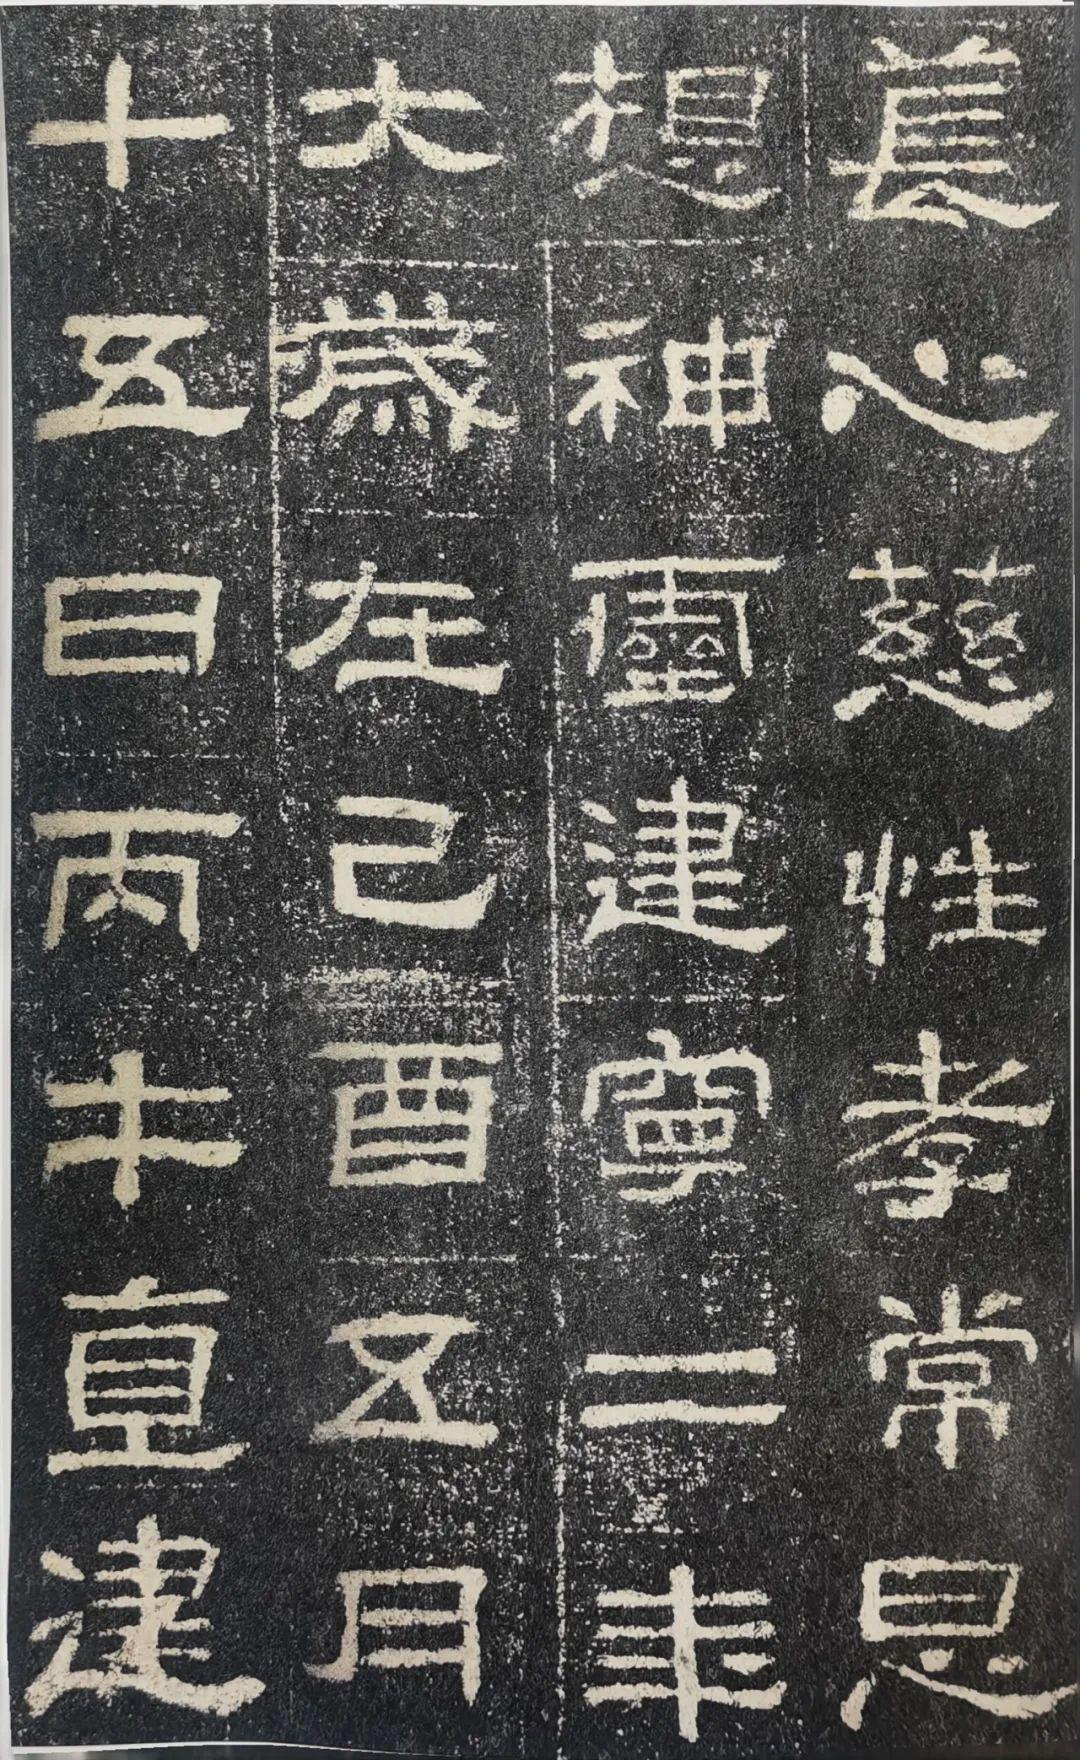 萇心慈性孝常思
想神靈建寧二年
大歲在己酉五月
十五日丙午直建